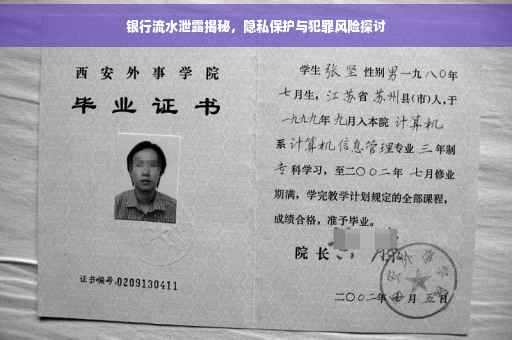 银行流水泄露揭秘，隐私保护与犯罪风险探讨
西安外事学院
毕业证书
证书编号:0209130411
学生 张坚 性别 男 一九八〇年
七月生，江苏省 苏州县(市)人,于
一九九九年 九月入本院 计算机
系 计算机信息管理专业 三 年制
专 科学习，至二〇〇二年 七月修业
期满，学完教学计划规定的全部课程，
成绩合格，准予毕业。
院 长
二〇〇二年 月 五 日